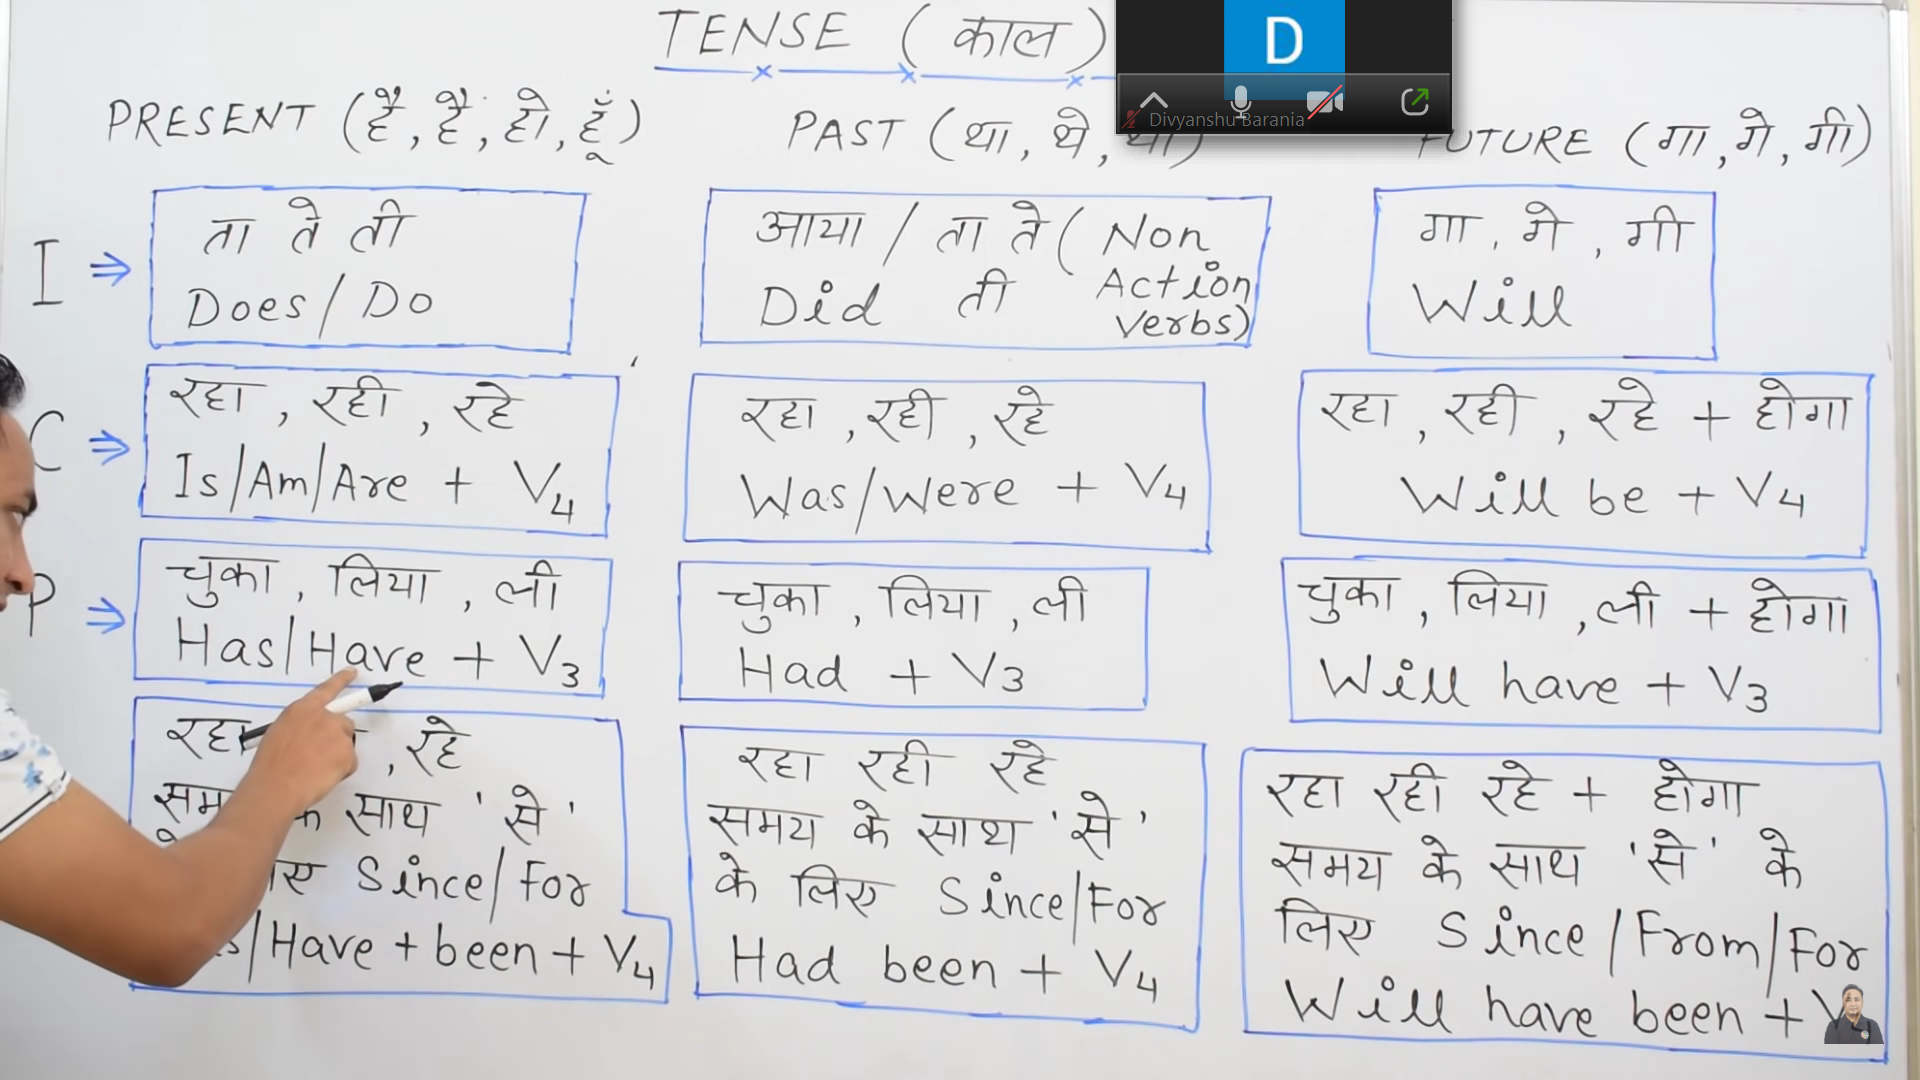 TENSE (काल)
D
Divyanshu Barania
PRESENT (है, हैं, हो, हूँ)
PAST (था, थे,
FUTURE (गा, गे, गी)
I ⇒
ता ते ती
Does/ Do
आया / ता ते ( Non
Did ती Action
Verbs)
गा, गे, गी
Will
C ⇒
रहा, रही, रहे
Is/Am/Are + V4
रहा, रही, रहे
Was/Were + V4
रहा, रही, रहे + होगा
Will be + V4
P ⇒
चुका, लिया, ली
Has/Have + V3
चुका, लिया, ली
Had + V3
चुका, लिया, ली + होगा
Will have + V3
, रहे
साथ 'से'
Since/For
/Have + been + V4
रहा रही रहे
समय के साथ 'से'
के लिए Since/For
Had been + V4
रहा रही रहे + होगा
समय के साथ 'से' के
लिए Since/From/For
Will have been +